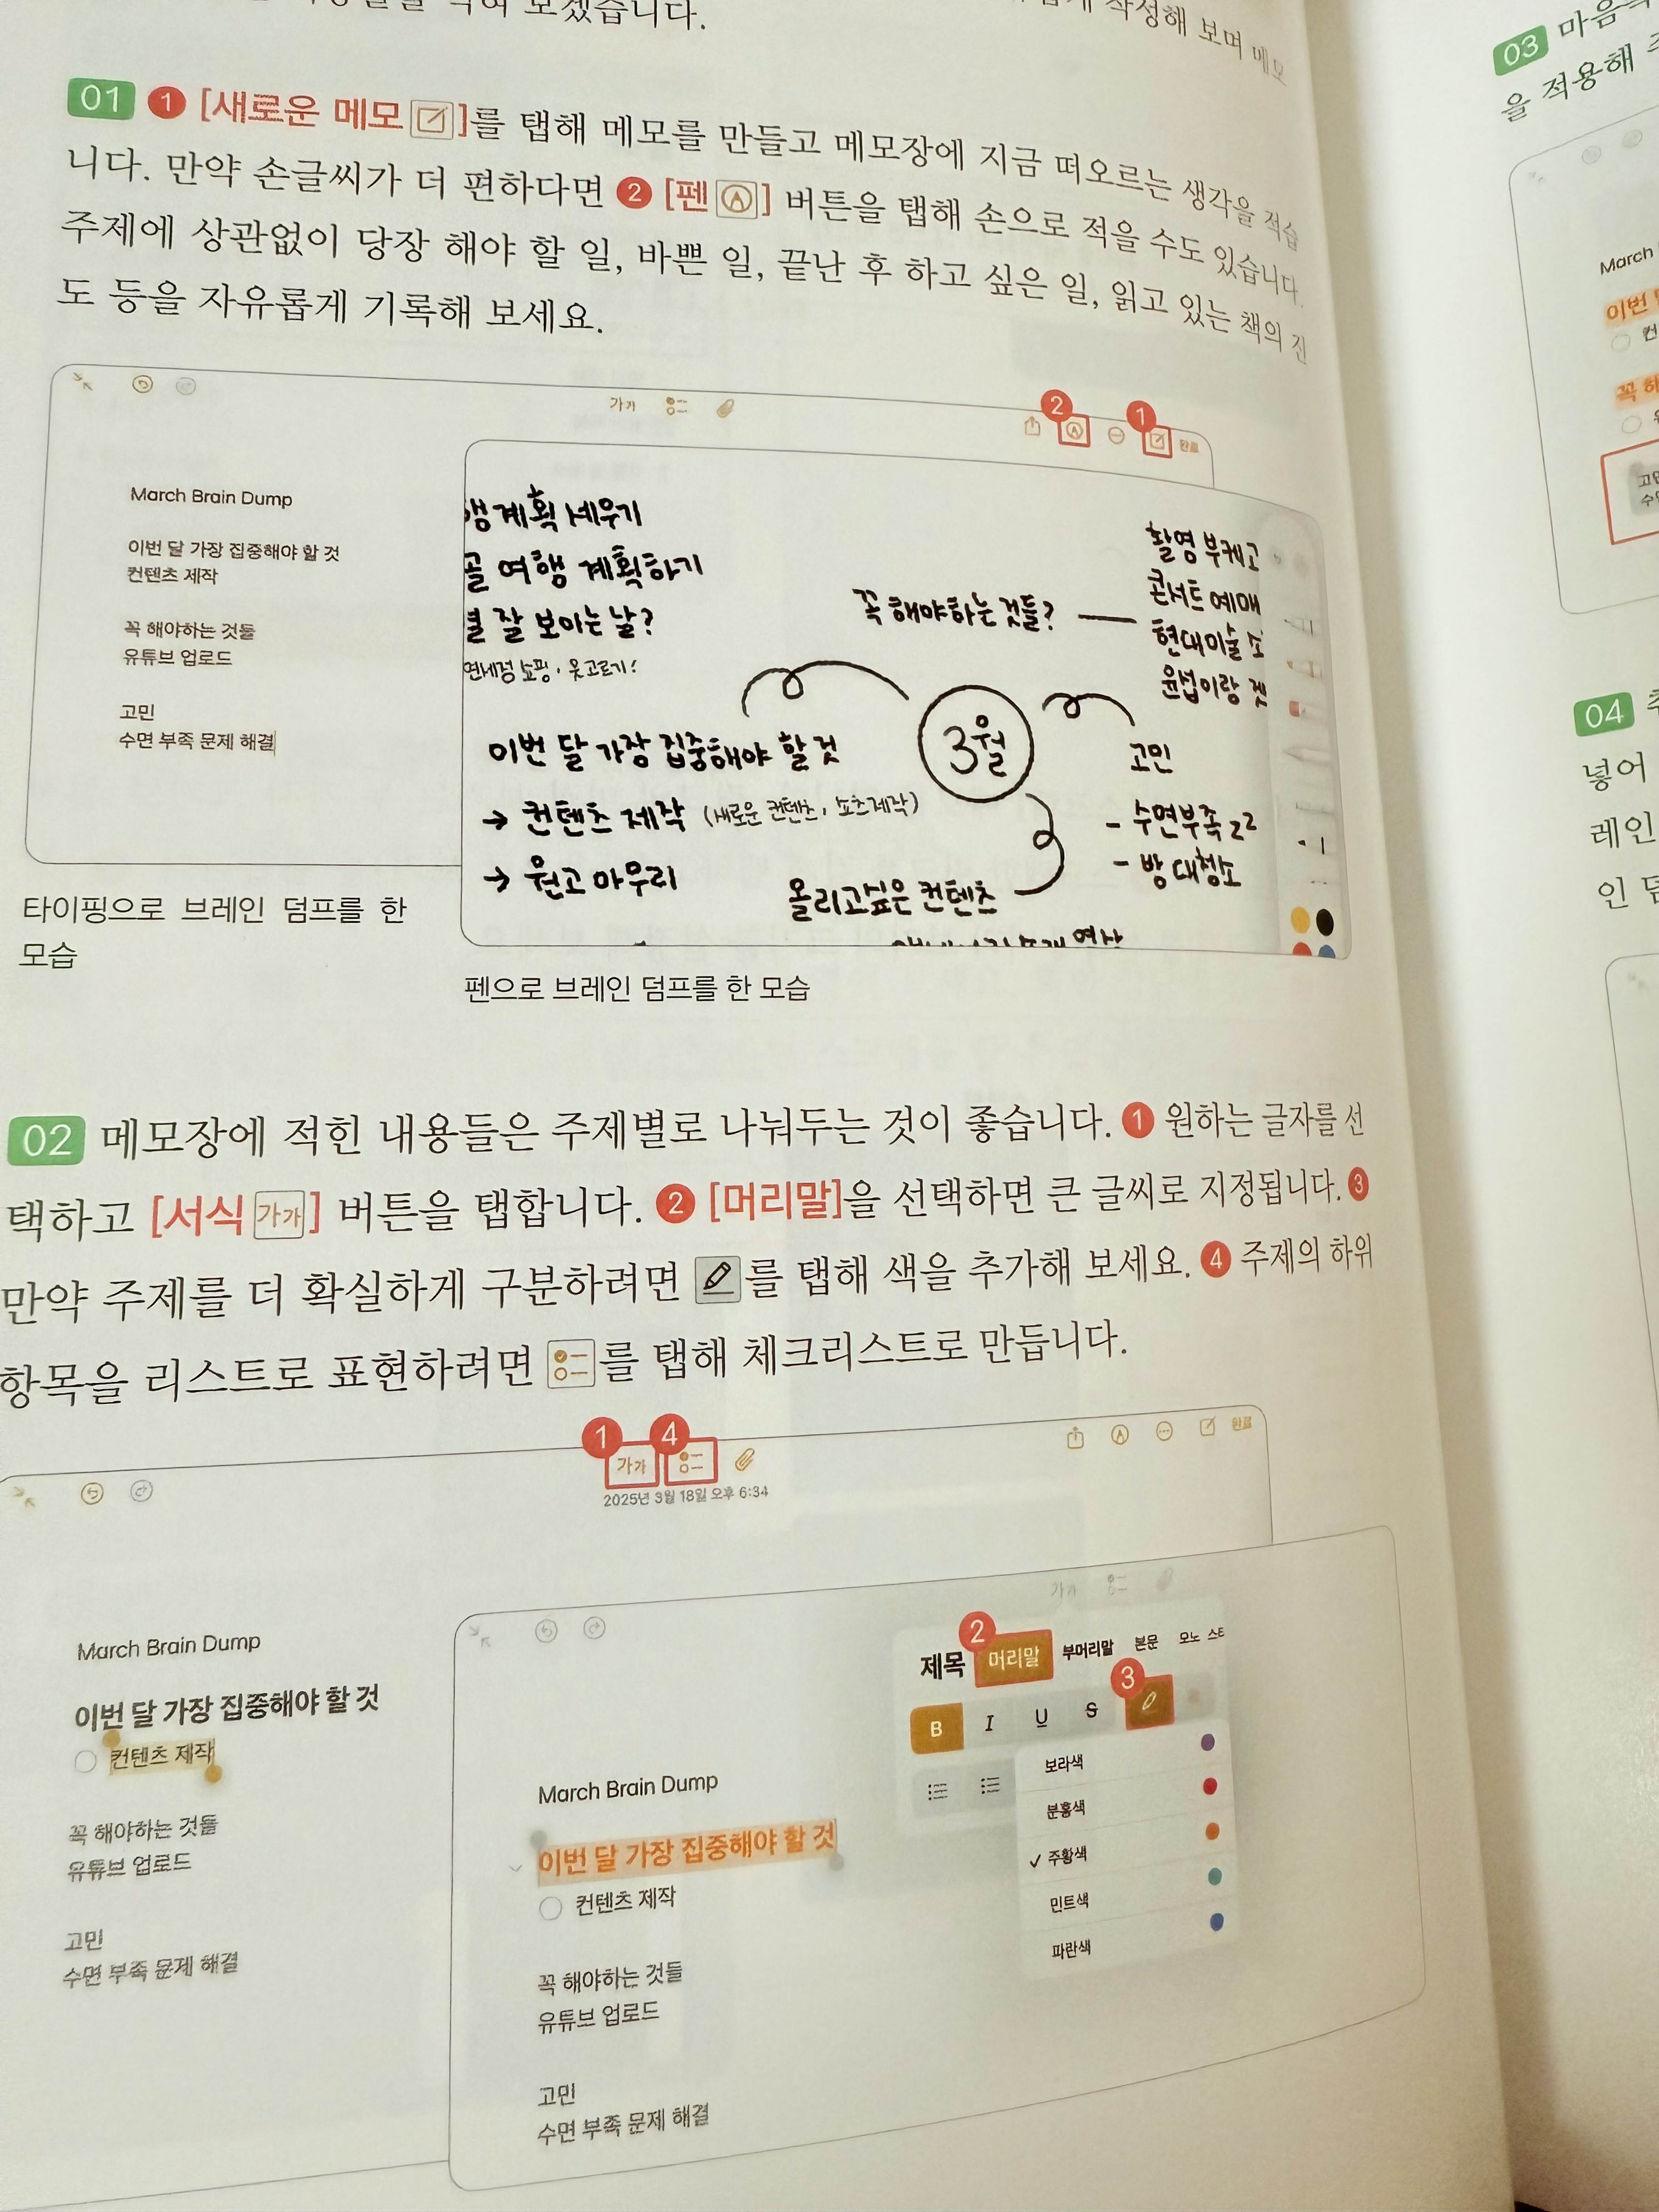 보겠습니다.
작성해 보며 메모
01 1 [새로운 메모]를 탭해 메모를 만들고 메모장에 지금 떠오르는 생각을 적습
니다. 만약 손글씨가 더 편하다면 2 [펜] 버튼을 탭해 손으로 적을 수도 있습니다.
주제에 상관없이 당장 해야 할 일, 바쁜 일, 끝난 후 하고 싶은 일, 읽고 있는 책의 진
도 등을 자유롭게 기록해 보세요.
가가
2 1
완료
March Brain Dump
이번 달 가장 집중해야 할 것
컨텐츠 제작
꼭 해야하는 것들
유튜브 업로드
고민
수면 부족 문제 해결
계획 세우기
여행 계획하기
잘 보이는 날?
쇼핑, 옷고르기!
이번 달 가장 집중해야 할 것
→ 컨텐츠 제작 (새로운 컨텐츠, 쇼츠제작)
→ 원고 마무리
3월
꼭 해야하는 것들?
촬영
콘서트 예매
현대미술
윤섭이랑
고민
- 수면부족 zz
- 방 대청소
올리고싶은 컨텐츠
타이핑으로 브레인 덤프를 한
모습
펜으로 브레인 덤프를 한 모습
02 메모장에 적힌 내용들은 주제별로 나눠두는 것이 좋습니다. 1 원하는 글자를 선
택하고 [서식 가가] 버튼을 탭합니다. 2 [머리말]을 선택하면 큰 글씨로 지정됩니다. 3
만약 주제를 더 확실하게 구분하려면 를 탭해 색을 추가해 보세요. 4 주제의 하위
항목을 리스트로 표현하려면 를 탭해 체크리스트로 만듭니다.
1 4
가가
완료
2025년 3월 18일 오후 6:34
March Brain Dump
이번 달 가장 집중해야 할 것
컨텐츠 제작
꼭 해야하는 것들
유튜브 업로드
고민
수면 부족 문제 해결
가가
2
제목 머리말 부머리말 본문 모노
3
B I U S
보라색
분홍색
✓ 주황색
민트색
파란색
March Brain Dump
이번 달 가장 집중해야 할 것
컨텐츠 제작
꼭 해야하는 것들
유튜브 업로드
고민
수면 부족 문제 해결
03
을 적용해
March
이번
꼭
04
넣어
레인
인